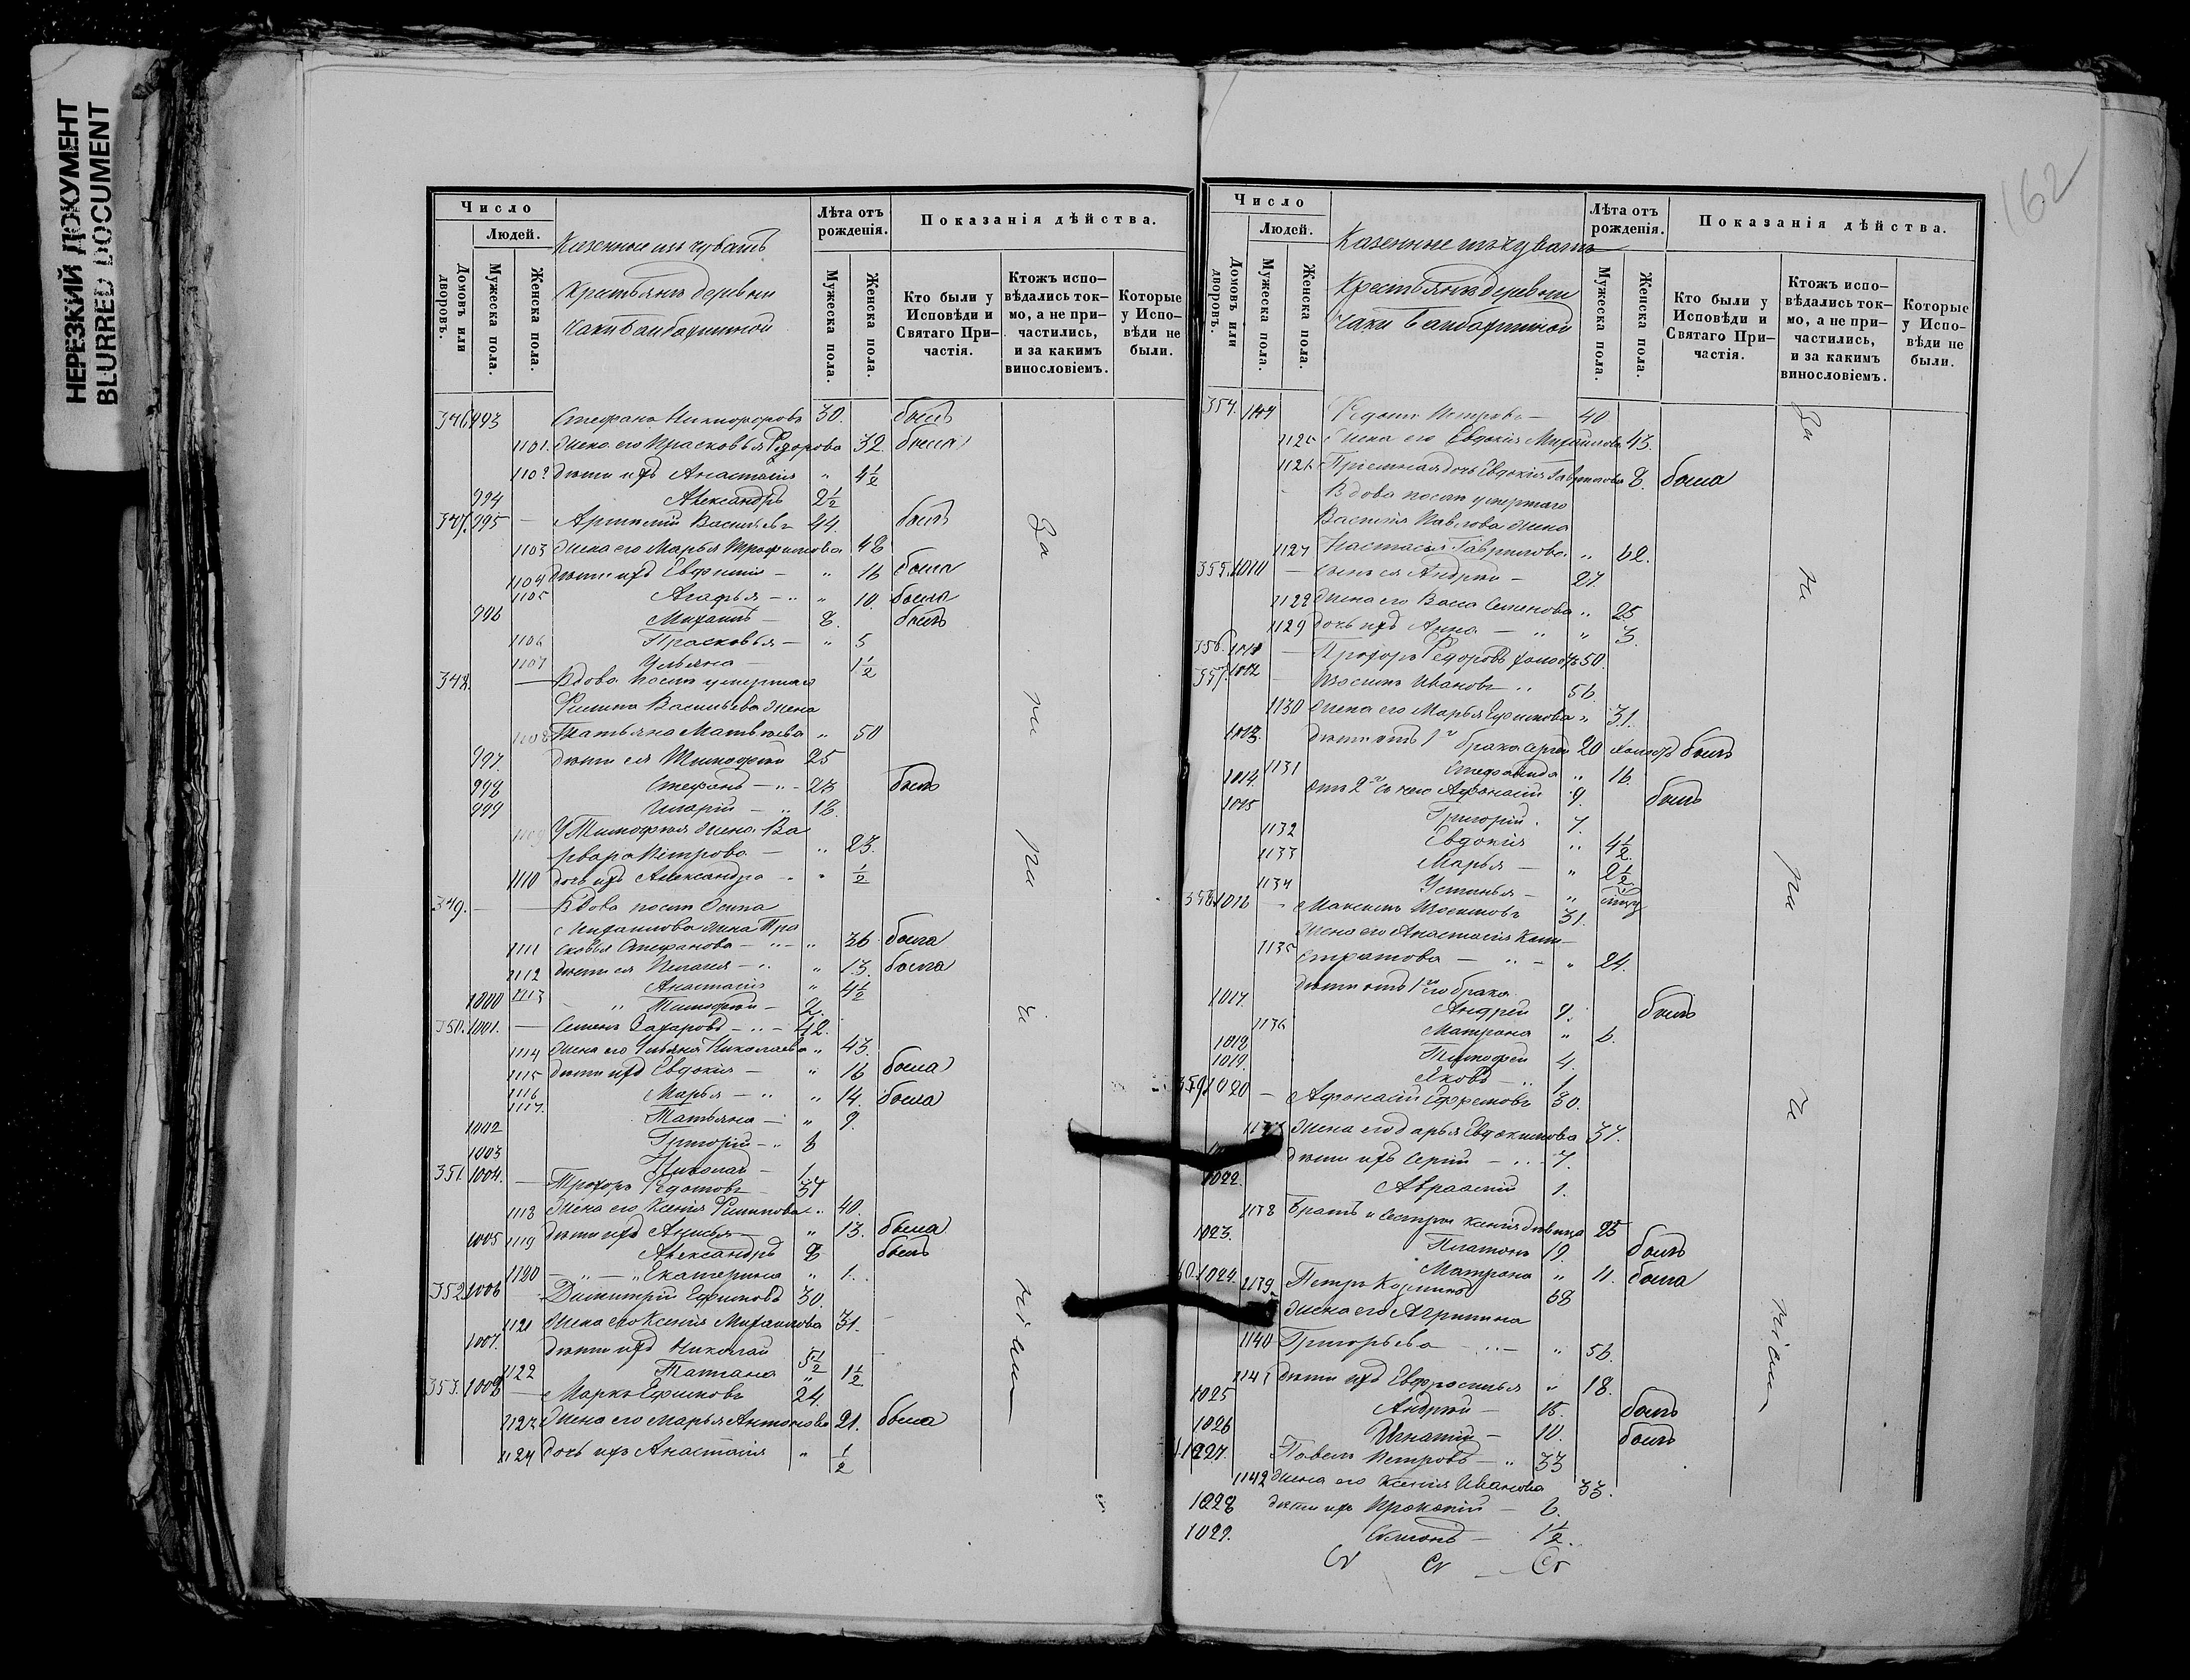 НЕРЕЗКИЙ ДОКУМЕНТ
BLURRED DOCUMENT
Число
Людей.
Домовъ или дворовъ.
Мужеска пола.
Женска пола.
Казенные изъ чувашъ
Крестьянъ деревни
Лѣта отъ рожденія.
Мужеска пола.
Женска пола.
Показанія дѣйства.
Кто были у Исповѣди и Святаго При-частія.
Ктожъ испо-вѣдались ток-мо, а не при-частились, и за какимъ винословіемъ.
Которые у Испо-вѣди не были.
346 993 Стефанъ Никифоровъ 30. былъ
1101. Жена его Прасковья Ѳедорова 32. была
1102 дѣти ихъ Анастасія " 4½
994 Александръ 2½
347. 995 — Артемій Васильевъ 44. былъ
1103 Жена его Марья Трофимова 48
1104 дѣти ихъ Евфимія — " 16 была
1105 Агафья — " " 10. была
996 Михаилъ — 8. былъ
1106 Прасковья — " 5
1107 Ульяна — 1½
348. — Вдова послѣ умершаго
Филипа Васильева жена
1108 Татьяна Матвѣева " 50
997. дѣти ея Тимофей 25
998 Стефанъ — " - 23 былъ
999 Иларій — " 18.
1109 У Тимофея жена Ва
рвара Петрова — " 23.
1110 дочь ихъ Александра - " ½
349. — Вдова послѣ Осипа
Михаилова жена Пра
1111 сковья Стефанова — " — " 36 была
1112 дѣти ея Пелагея — " " 13. была
1113 Анастасія " 4½
1000 " Тимофей — 2.
350. 1001. — Семенъ Захаровъ — " — 42.
1114 Жена его Ульяна Николаева " 43.
1115 дѣти ихъ Евдокія — " 16 была
1116 Марья — " " 14. была
1117. Татьяна — " 9.
1002 Григорій — " 6
1003 Николай — 1.
351. 1004. — Трофоръ Ѳедотовъ 37
1118 Жена его Ксенія Филипова " 40.
1119 дѣти ихъ Анисья — " 13. была
1005 Александръ 8 былъ
1120 — " — " Екатерина " 1.
352. 1006 Димитрій Ефимовъ 30.
1121 Жена его Ксенія Михаилова 31.
1007. дѣти ихъ Николай 5½
1122 Татіана " 1½
353. 1008 — Марко Ефимовъ 24.
1123 Жена его Марья Антонова 21. была
1124 дочь ихъ Анастасія " ½
За
162
Число
Людей.
Домовъ или дворовъ.
Мужеска пола.
Женска пола.
Казенные изъ чувашъ
Крестьянъ деревни
Лѣта отъ рожденія.
Мужеска пола.
Женска пола.
Показанія дѣйства.
Кто были у Исповѣди и Святаго При-частія.
Ктожъ испо-вѣдались ток-мо, а не при-частились, и за какимъ винословіемъ.
Которые у Испо-вѣди не были.
354. 1009 Ѳедотъ Петровъ — 40
1125 Жена его Евдокія Михаилова 43.
1126 Пріемная дочь Евдокія Гаврилова 8. была
Вдова послѣ умершаго
Василія Павлова жена
1127 Настасья Гаврилова " 62.
355. 1010 — Сынъ ея Андрей — 27.
1128 Жена его Васса Семенова " 25
1129 дочь ихъ Анна — " " 3.
356. 1011 — Прохоръ Ѳедоровъ холостъ 50.
357. 1012 Изосимъ Ивановъ " 56.
1130 Жена его Марья Ефимова " 31.
1013. дѣти отъ 1го брака Сергей 20 холостъ былъ
1131 Стефанида " 16.
1014. отъ 2го съ нею Афонасій 9. былъ
1015 Григорій. 7.
1132 Евдокія " 4½
1133 Марья — " 2½
1134 Устинья — "
358. 1016 - Максимъ Изосимовъ 31.
Жена его Анастасія Кали-
1135 стратова — " — " 24.
дѣти отъ 1го его брака
1017. Андрей 9. былъ
1136 Матрона " 6.
1018 Тимофей 4.
1019. Яковъ — " 1.
359. 1020 — Афонасій Ефремовъ 30.
1137 Жена его Дарья Евдокимова 37.
дѣти ихъ Сергій — " — 7.
1022. Авраамій 1.
1138 Братъ и сестры Ксенія дѣвица 25
1023. Платонъ 19. былъ
1139 Матрона " 11. была
1024. Петръ Козминъ 68
Жена его Агрипина
1140 Григорьева — " — " 56.
1141 дѣти ихъ Евфросинья " 18.
1025 Андрей — 15. былъ
1026 Игнатій — 10. былъ
1027. Павелъ Петровъ — " 33
1142 Жена его Ксенія Иванова 33.
1028 дѣти ихъ Прокопій — 6.
1029. Симонъ — 1½.
За